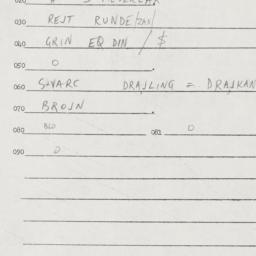 030 REJT RUNDE/ZAX/
040 GRIN EQ DIN / $
050 O .
060 SWARC DRAJLING = DRAJKAN
070 BROJN .
080 BLO 081 O
090 O